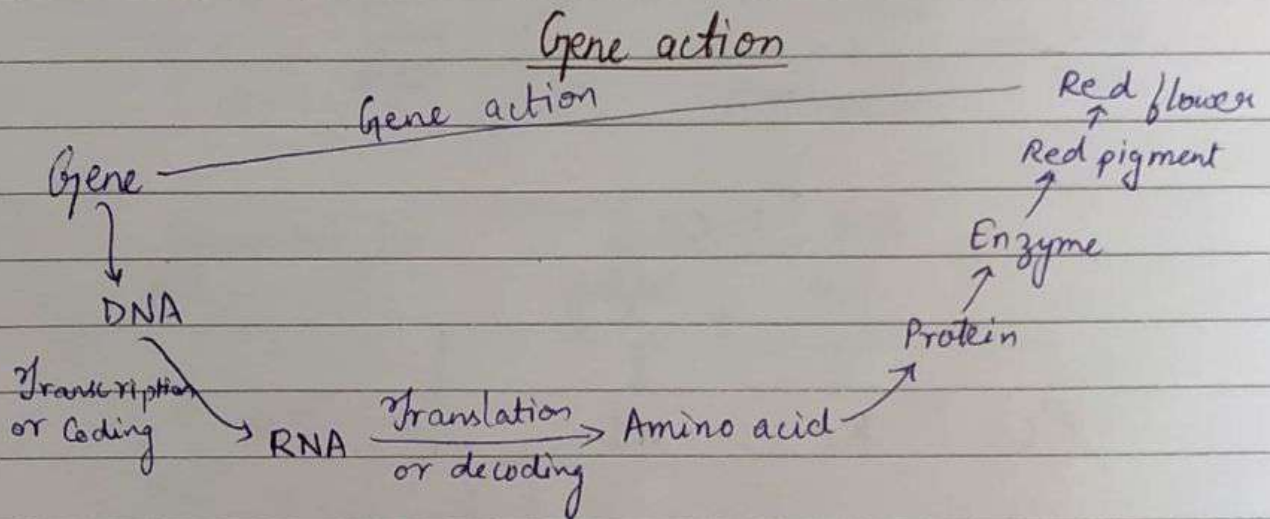 Gene action
Gene action
Red flower
Red pigment
Gene
Enzyme
DNA
Protein
Transcription
or Coding
RNA
Translation
or decoding
Amino acid